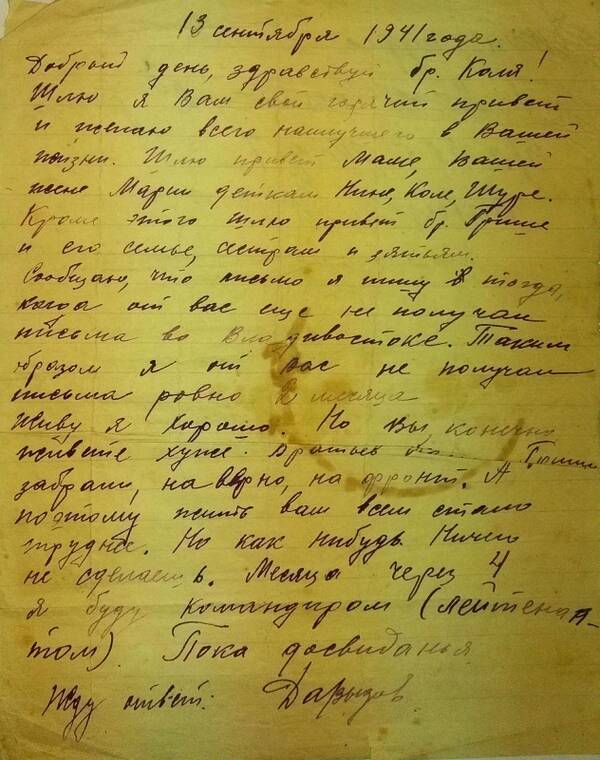 13 сентября 1941 года.
Добрый день, здравствуй бр. Коля!
Шлю я Вам свой горячий привет
и желаю всего наилучшего в Вашей
жизни. Шлю привет Маме, Вашей
жене Марии деткам Нине, Коле, Шуре.
Кроме этого шлю привет бр. Грише
и его семье, сестрам и зятьям.
Сообщаю, что письмо я пишу тогда,
когда от вас еще не получал
письма во Владивостоке. Таким
образом я от вас не получал
письма ровно 2 месяца
Живу я хорошо. Но Вы конечно
живете хуже. Братьев Гриши
забрали, наверно, на фронт. А
поэтому жить вам всем стало
труднее. Но как нибудь. Ничего
не сделаешь. Месяца через 4
я буду командиром (лейтена-
том). Пока досвиданья.
Жду ответ. Давыдов